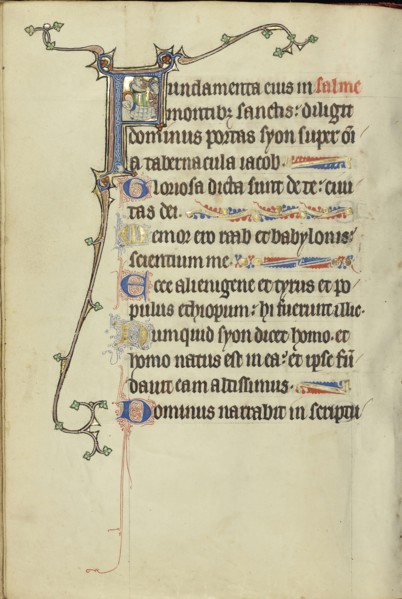 Fundamenta eius in salme
montib; sanctis: diligit
dominus portas syon super om̄
a tabernacula iacob.
Gloriosa dicta sunt de te: ciui
tas dei.
Memor ero raab et babylonis:
scientium me.
Ecce alienigene et tyrus et po
pulus ethiopum: hi fuerunt illic.
Numquid syon dicet homo. et
homo natus est in ea: et ipse fū
dauit eam altissimus.
Dominus narrabit in scriptu